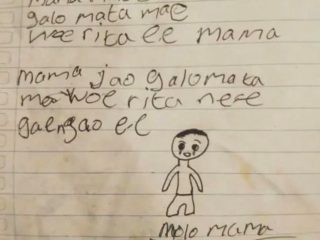 galo mata mae
woe rita ee mama
mama jao galomata
ma woe rita nese
gaengao e-e
molo mama